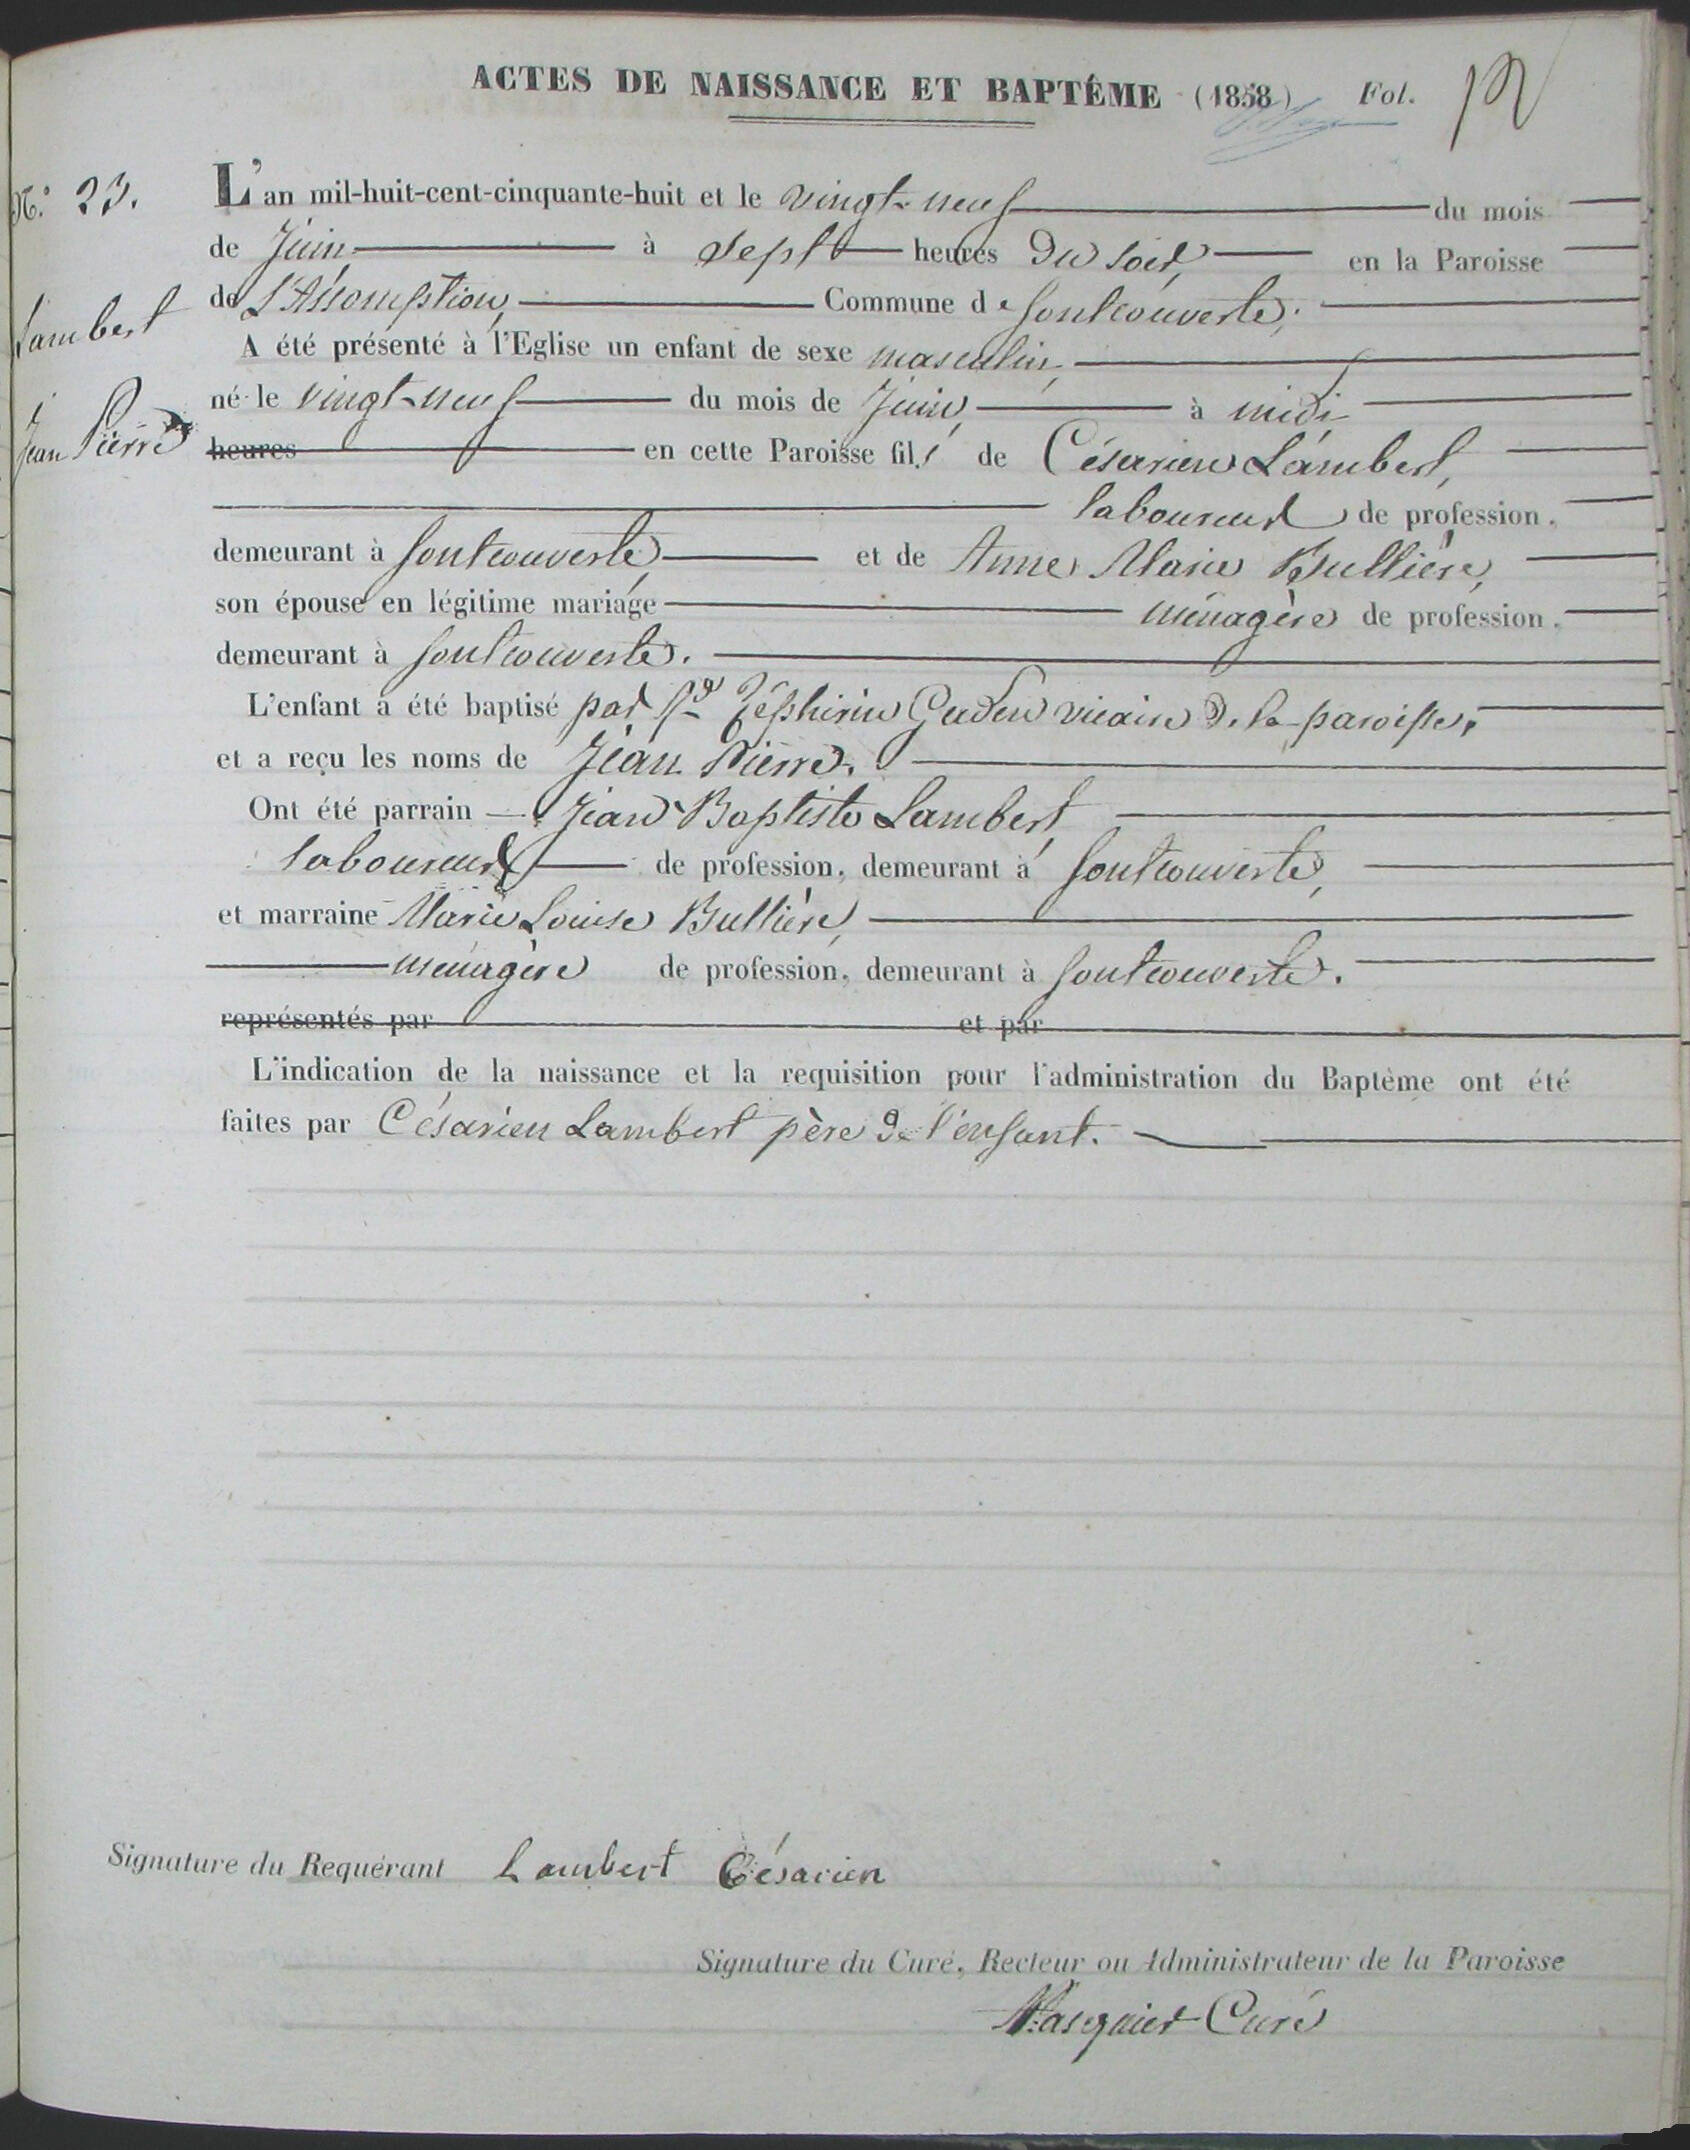 ACTES DE NAISSANCE ET BAPTÊME (1858) Fol. 12
N.º 23.
Lambert
Jean Pierre
L'an mil-huit-cent-cinquante-huit et le vingt-neuf du mois
de Juin à sept heures du soir, en la Paroisse
de L'Assomption, Commune de Fontcouverte;
A été présenté à l'Eglise un enfant de sexe masculin,
né le vingt-neuf du mois de Juin, à midi
heures en cette Paroisse fils de Césarien Lambert,
laboureur de profession.
demeurant à Fontcouverte, et de Anne Marie Bullière,
son épouse en légitime mariage ménagère de profession.
demeurant à Fontcouverte.
L'enfant a été baptisé par Rd Zéphirin Guden vicaire de la paroisse,
et a reçu les noms de Jean Pierre.
Ont été parrain Jean Baptiste Lambert
laboureur de profession, demeurant à Fontcouverte,
et marraine Marie Louise Bullière,
ménagère de profession, demeurant à Fontcouverte.
représentés par et par
L'indication de la naissance et la requisition pour l'administration du Baptême ont été
faites par Césarien Lambert père de l'enfant.
Signature du Requérant Lambert Césarien
Signature du Curé, Recteur ou Administrateur de la Paroisse
Pasquier Curé